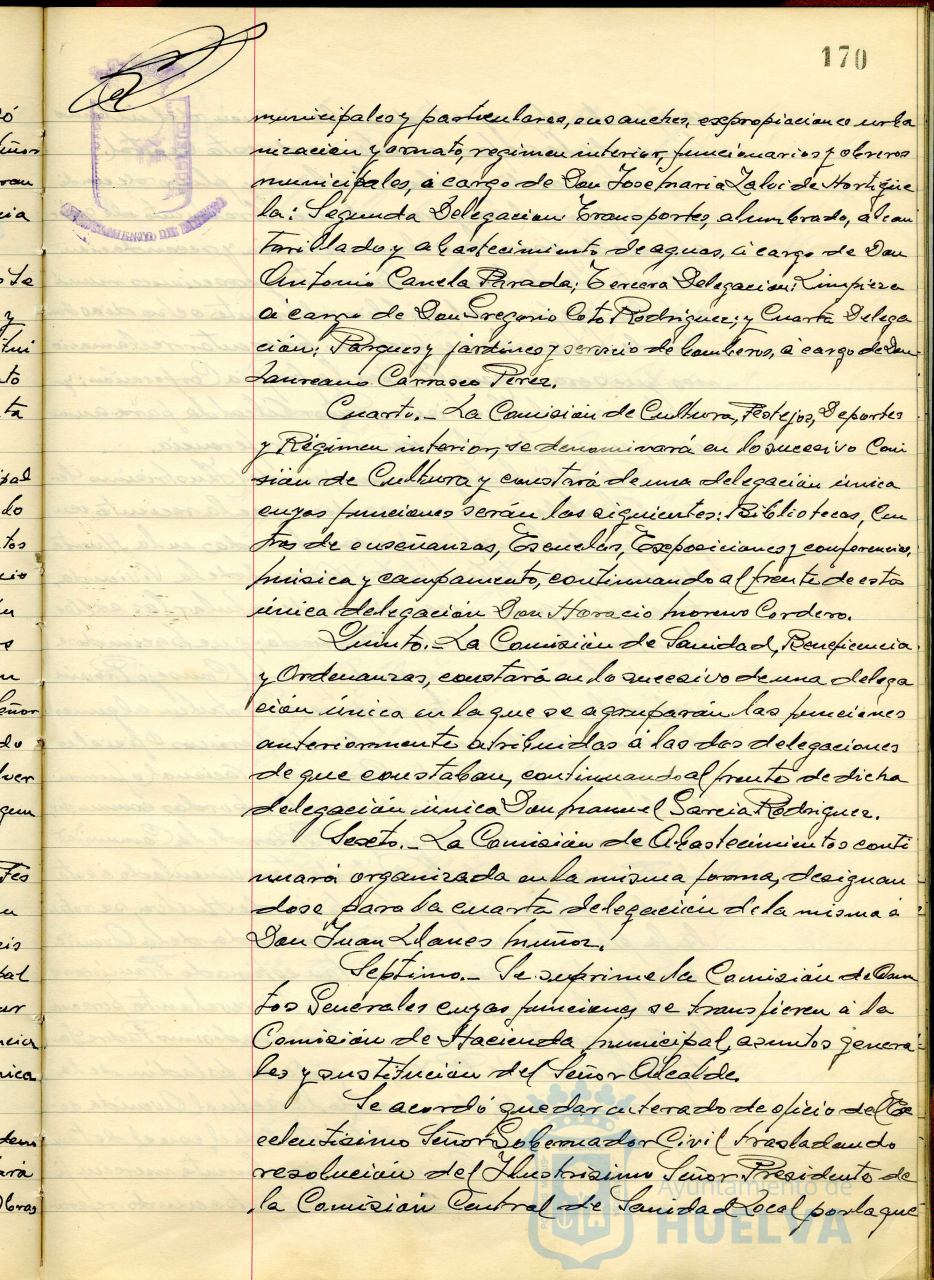 170
municipales y particulares, ensanches, expropiaciones urba
nización y ornato, regimen interior, funcionarios y obreros
municipales, á cargo de Don Jose maria Zalvide Hortigüe
la: Segunda Delegacion Transportes, alumbrado, alcan
tarillado y abastecimiento de aguas, á cargo de Don
Antonio Canela Parada; Tercera Delegacion: Limpieza
á cargo de Don Gregorio Coto Rodriguez; y Cuarta Delega
ción; Parques y jardines y servicio de bomberos, á cargo de Don
Laureano Carrasco Perez.
Cuarto.- La Comisión de Cultura, Festejos, Deportes
y Régimen interior, se denominará en lo sucesivo Comi
sión de Cultura y constará de una delegación única
cuyas funciones serán las siguientes: Bibliotecas, Cen
tros de enseñanzas, Escuelas, Exposiciones y conferencias,
música y campamento, continuando al frente de esta
única delegación Don Horacio moreno Cordero.
Quinto.- La Comisión de Sanidad, Beneficencia
y Ordenanzas, constará en lo sucesivo de una delega
ción única en la que se agruparán las funciones
anteriormente atribuidas á las dos delegaciones
de que constaban, continuando al frente de dicha
delegación única Don manuel Garcia Rodriguez.
Sexto.- La Comisión de Abastecimientos conti
nuará organizada en la misma forma, designan
dose para la cuarta delegación de la misma á
Don Juan Llanes muñoz.
Septimo.- Se suprime la Comisión de Asun
tos Generales cuyas funciones se transfieren á la
Comisión de Hacienda municipal, asuntos genera
les y sustitución del Señor Alcalde.
Se acordó quedar enterado de oficio del Ex
celentisimo Señor Gobernador Civil trasladando
resolución del Ilustrisimo Señor Presidente de
la Comisión Central de Sanidad Local por la que
Ayuntamiento de
HUELVA